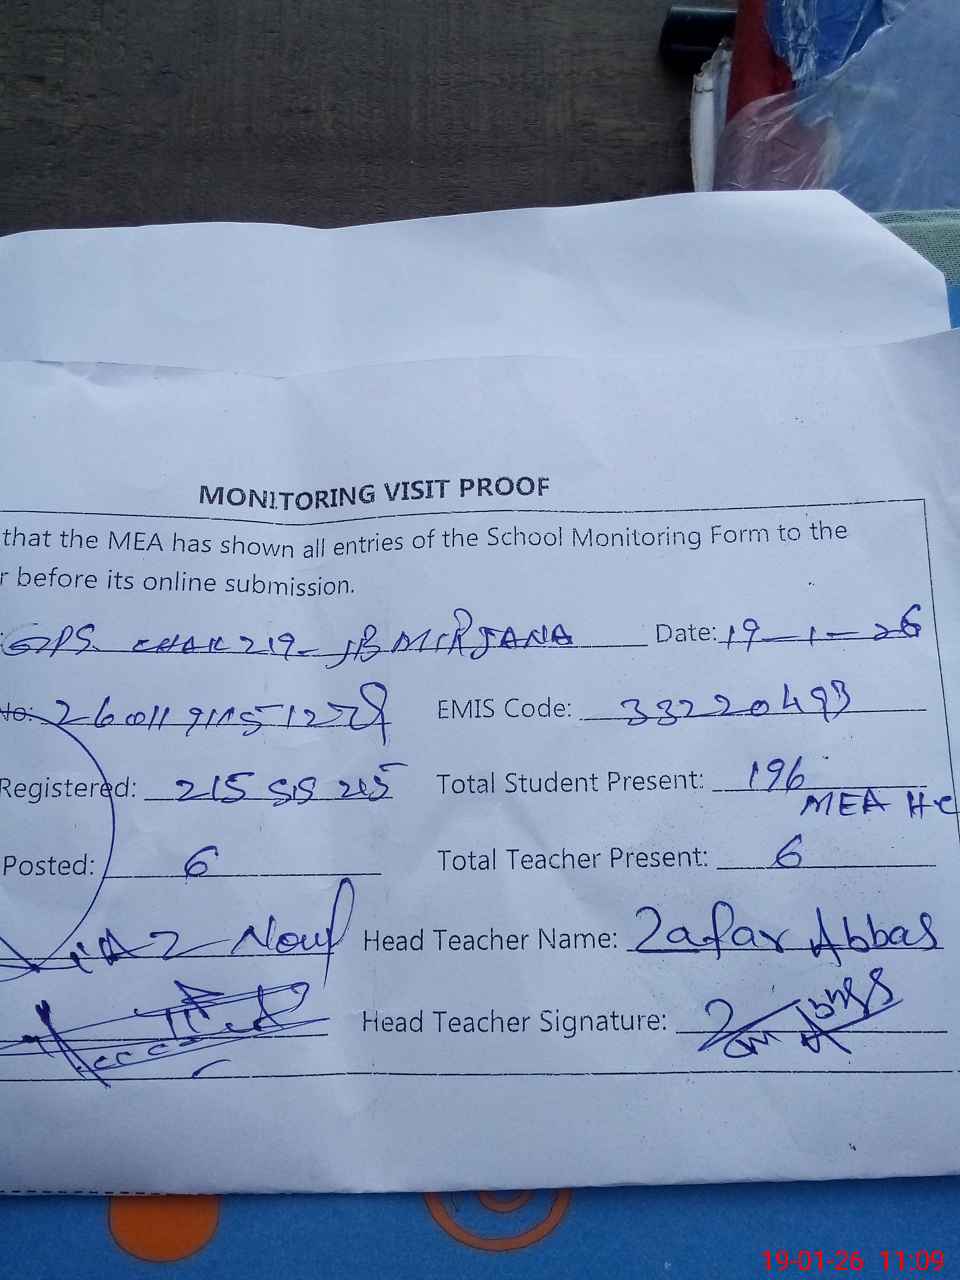 MONITORING VISIT PROOF
that the MEA has shown all entries of the School Monitoring Form to the
r before its online submission.
GPS CHAK 219-JB MIRJANA Date: 19-1-26
No: EMIS Code: 33220493
Registered: 215 Total Student Present: 196
MEA HC
Posted: 6 Total Teacher Present: 6
Head Teacher Name: Zafar Abbas
Head Teacher Signature:
19-01-26 11:09